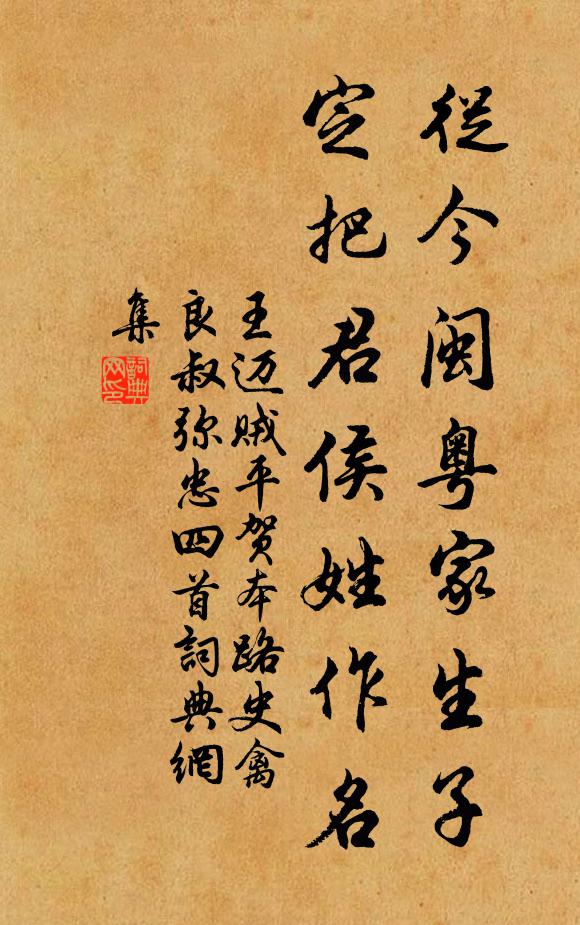 從今閩粤家生子
定把君侯姓作名
王迈贼平贺本路史禽
良叔弥忠四首詞典網
集
詞典
网印